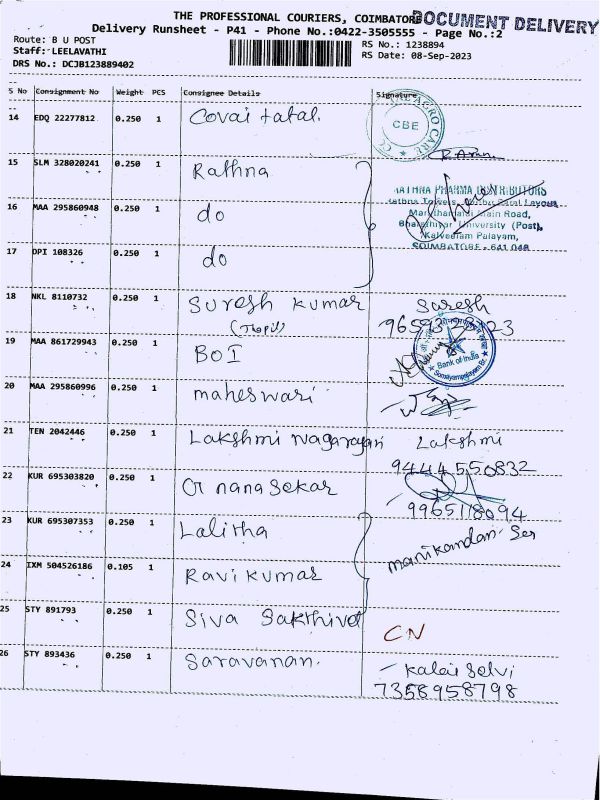 THE PROFESSIONAL COURIERS, COIMBATORE
DOCUMENT DELIVERY
Delivery Runsheet - P41 - Phone No.:0422-3505555 - Page No.:2
Route: B U POST
RS No.: 1238894
Staff: LEELAVATHI
RS Date: 08-Sep-2023
DRS No.: DCJB123889402
S No Consignment No Weight PCS Consignee Details Signature
14 EDQ 22277812 0.250 1 Covai tatal.
CBE
15 SLM 328020241 0.250 1 Rathna
RATHNA PHARMA DISTRIBUTORS
16 MAA 295860948 0.250 1 do
Main Road,
University (Post),
17 DPI 108326 0.250 1 do
Kalveeram Palayam,
COIMBATORE - 641 046
18 NKL 8110732 0.250 1 Suresh kumar Suresh
19 MAA 861729943 0.250 1 BOI
Bank of India
20 MAA 295860996 0.250 1 maheswari
21 TEN 2042446 0.250 1 Lakshmi nagarajan Lakshmi
9444550832
22 KUR 695303820 0.250 1 Gnanasekar
9965118094
23 KUR 695307353 0.250 1 Lalitha
manikandan
24 IXM 504526186 0.105 1 Ravikumar
25 STY 891793 0.250 1 Siva Sakthivel
CN
26 STY 893436 0.250 1 Saravanan. Kalai Selvi
7358958798